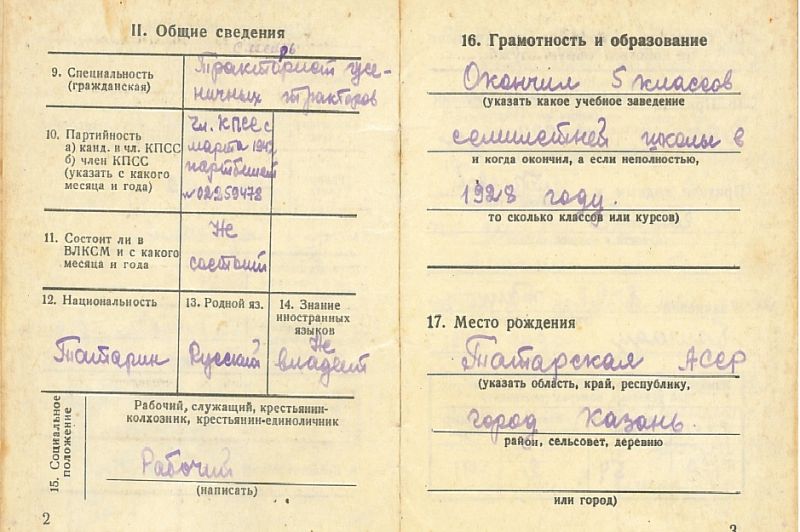 II. Общие сведения
Слесарь
9. Специальность
(гражданская)
Тракторист гусе-
ничных тракторов
10. Партийность
а) канд. в чл. КПСС
б) член КПСС
(указать с какого
месяца и года)
Чл. КПСС с
марта 1942
партбилет
№ 02259478
11. Состоит ли в
ВЛКСМ и с какого
месяца и года
Не
состоит
12. Национальность
Татарин
13. Родной яз.
Русский
14. Знание
иностранных
языков
Не
владеет
15. Социальное
положение
Рабочий, служащий, крестьянин-
колхозник, крестьянин-единоличник
Рабочий
(написать)
2
16. Грамотность и образование
Окончил 5 классов
(указать какое учебное заведение
семилетней школы в
и когда окончил, а если неполностью,
1928 году.
то сколько классов или курсов)
17. Место рождения
Татарская АССР
(указать область, край, республику,
город Казань
район, сельсовет, деревню
или город)
3